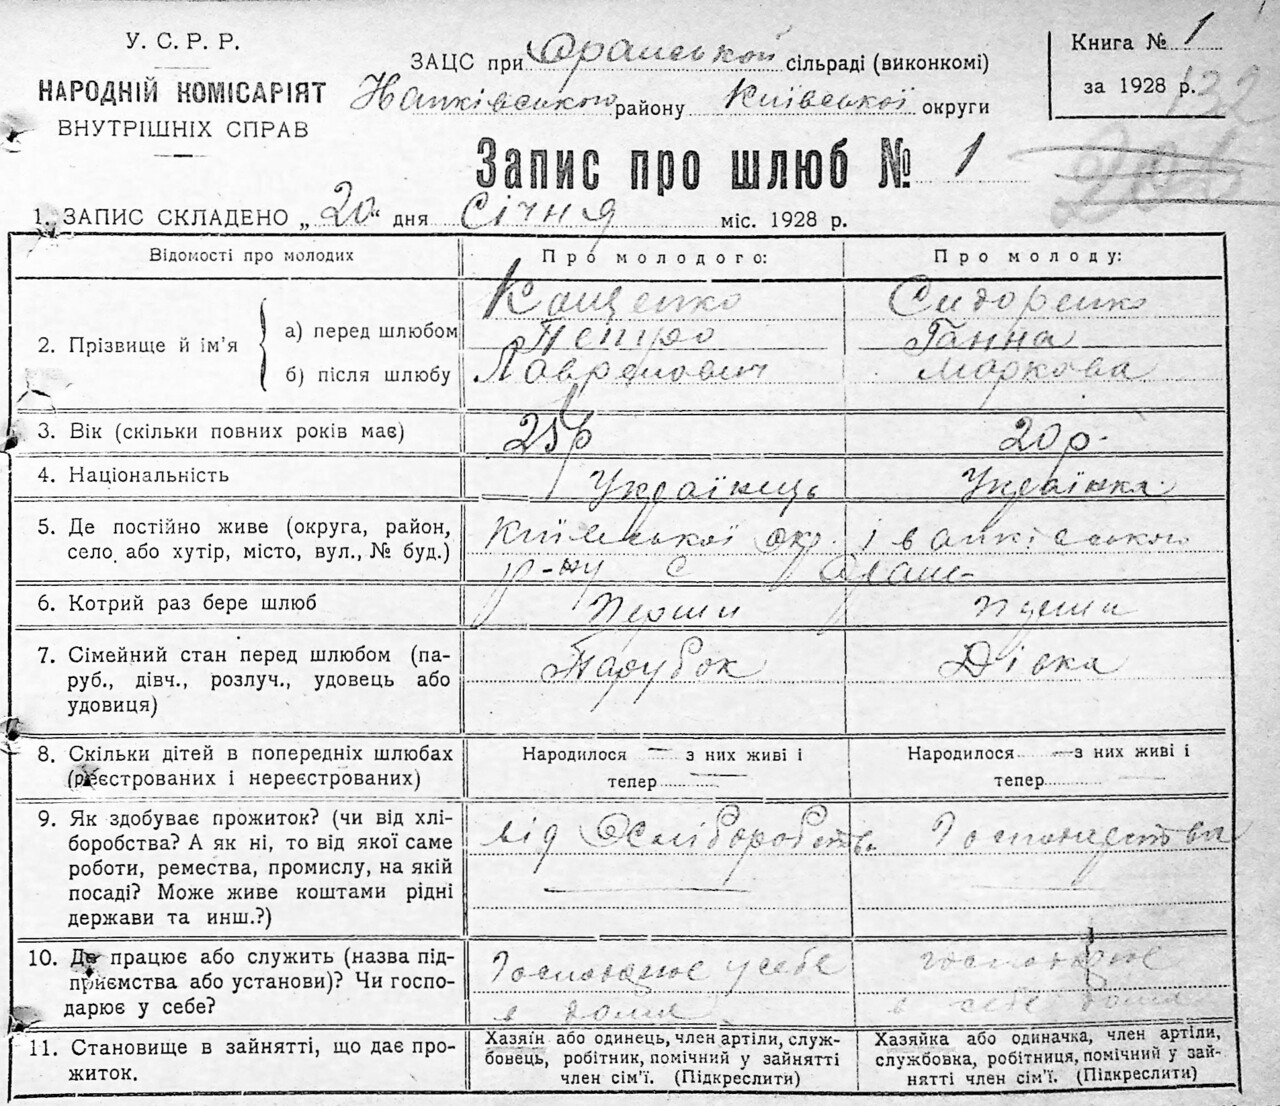 У. С. Р. Р.
НАРОДНІЙ КОМІСАРІЯТ
ВНУТРІШНІХ СПРАВ
ЗАЦС при Оранської сільраді (виконкомі)
району Київської округи
Книга № 1
за 1928 р.
132
Запис про шлюб № 1
206
1. ЗАПИС СКЛАДЕНО „20“ дня Січня міс. 1928 р.
Відомості про молодих
Про молодого:
Про молоду:
2. Прізвище й ім’я
а) перед шлюбом
б) після шлюбу
Кащенко
Петро
Лаврінович
Сидоренко
Ганна
Маркова
3. Вік (скільки повних років має)
25р
20р.
4. Національність
Українець
Українка
5. Де постійно живе (округа, район,
село або хутір, місто, вул., № буд.)
Київської окр. іванківського
р-ну с Оран-
6. Котрий раз бере шлюб
Перши
Перши
7. Сімейний стан перед шлюбом (па-
руб., дівч., розлуч., удовець або
удовиця)
Парубок
Дівка
8. Скільки дітей в попередніх шлюбах
(реєстрованих і нереєстрованих)
Народилося — з них живі і
тепер —
Народилося — з них живі і
тепер —
9. Як здобуває прожиток? (чи від хлі-
боробства? А як ні, то від якої саме
роботи, ремества, промислу, на якій
посаді? Може живе коштами рідні
держави та инш.?)
від Хліборобств.
Господарства
10. Де працює або служить (назва під-
приємства або установи)? Чи госпо-
дарює у себе?
Господарює у себе
в дома
господарює
в себе дома
11. Становище в зайнятті, що дає про-
житок.
Хазяїн або одинець, член артіли, служ-
бовець, робітник, помічний у зайнятті
член сім’ї. (Підкреслити)
Хазяйка або одиначка, член артіли,
службовка, робітниця, помічний у зай-
нятті член сім’ї. (Підкреслити)